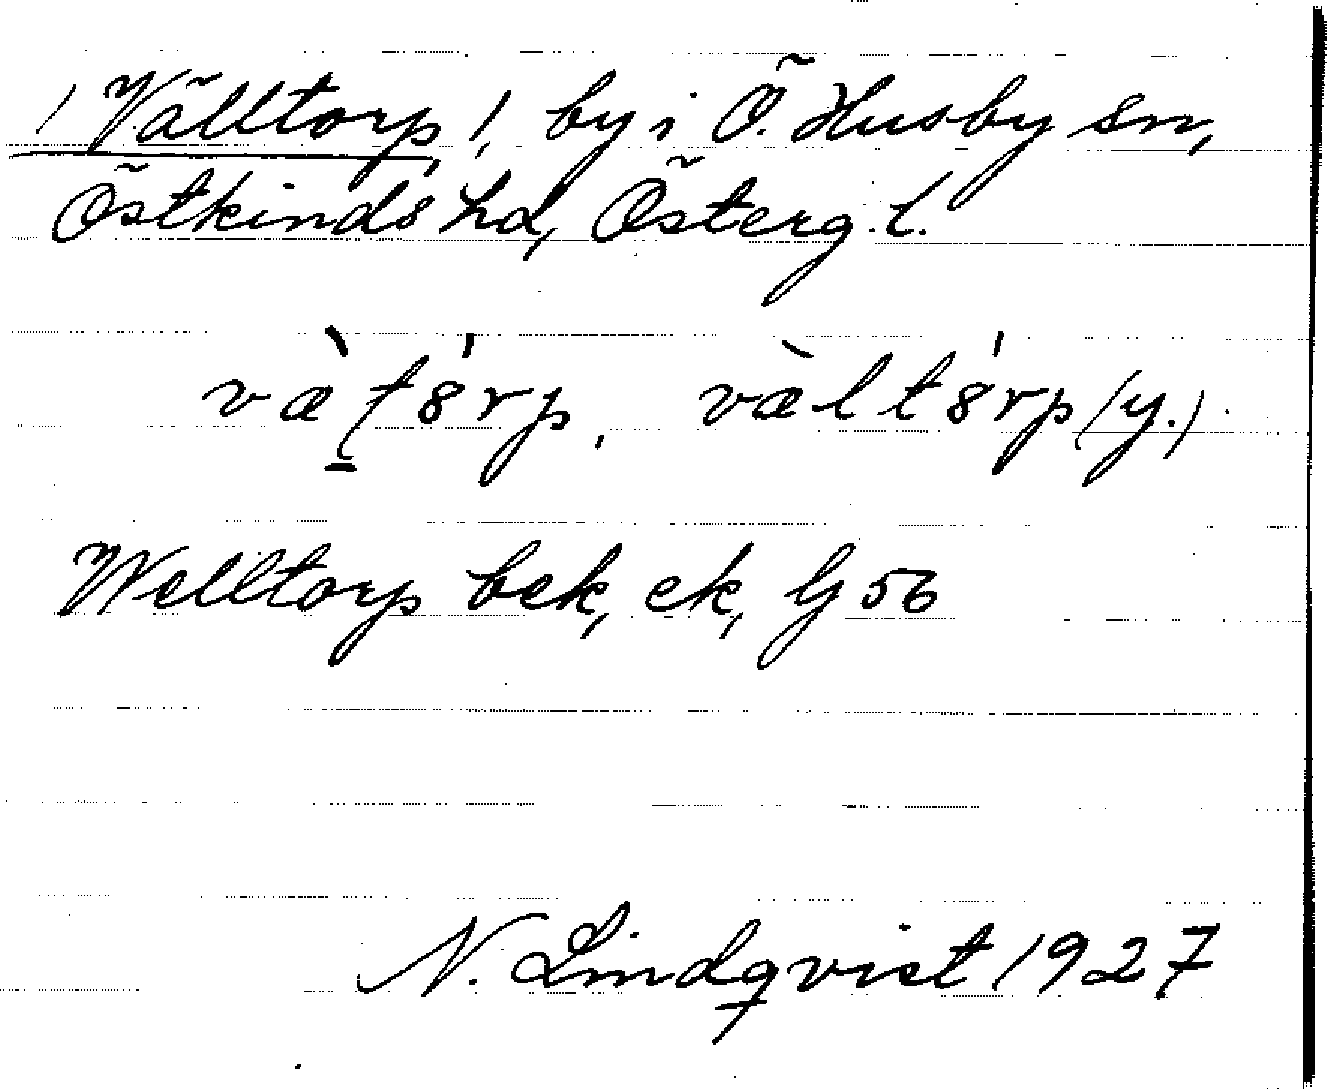 / Välltorp /, by i Ö. Husby sn,
Östkinds hd, Österg. l.
Welltorp bek, ek, Gj 56
N. Lindqvist 1927